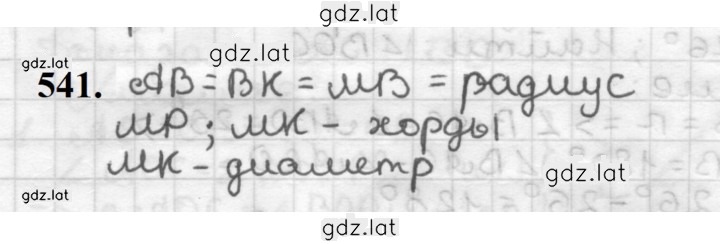 gdz.lat
gdz.lat
gdz.lat
541. AB = BK = MB = радиус
MP; MK - хорды
MK - диаметр
gdz.lat
gdz.lat
gdz.lat